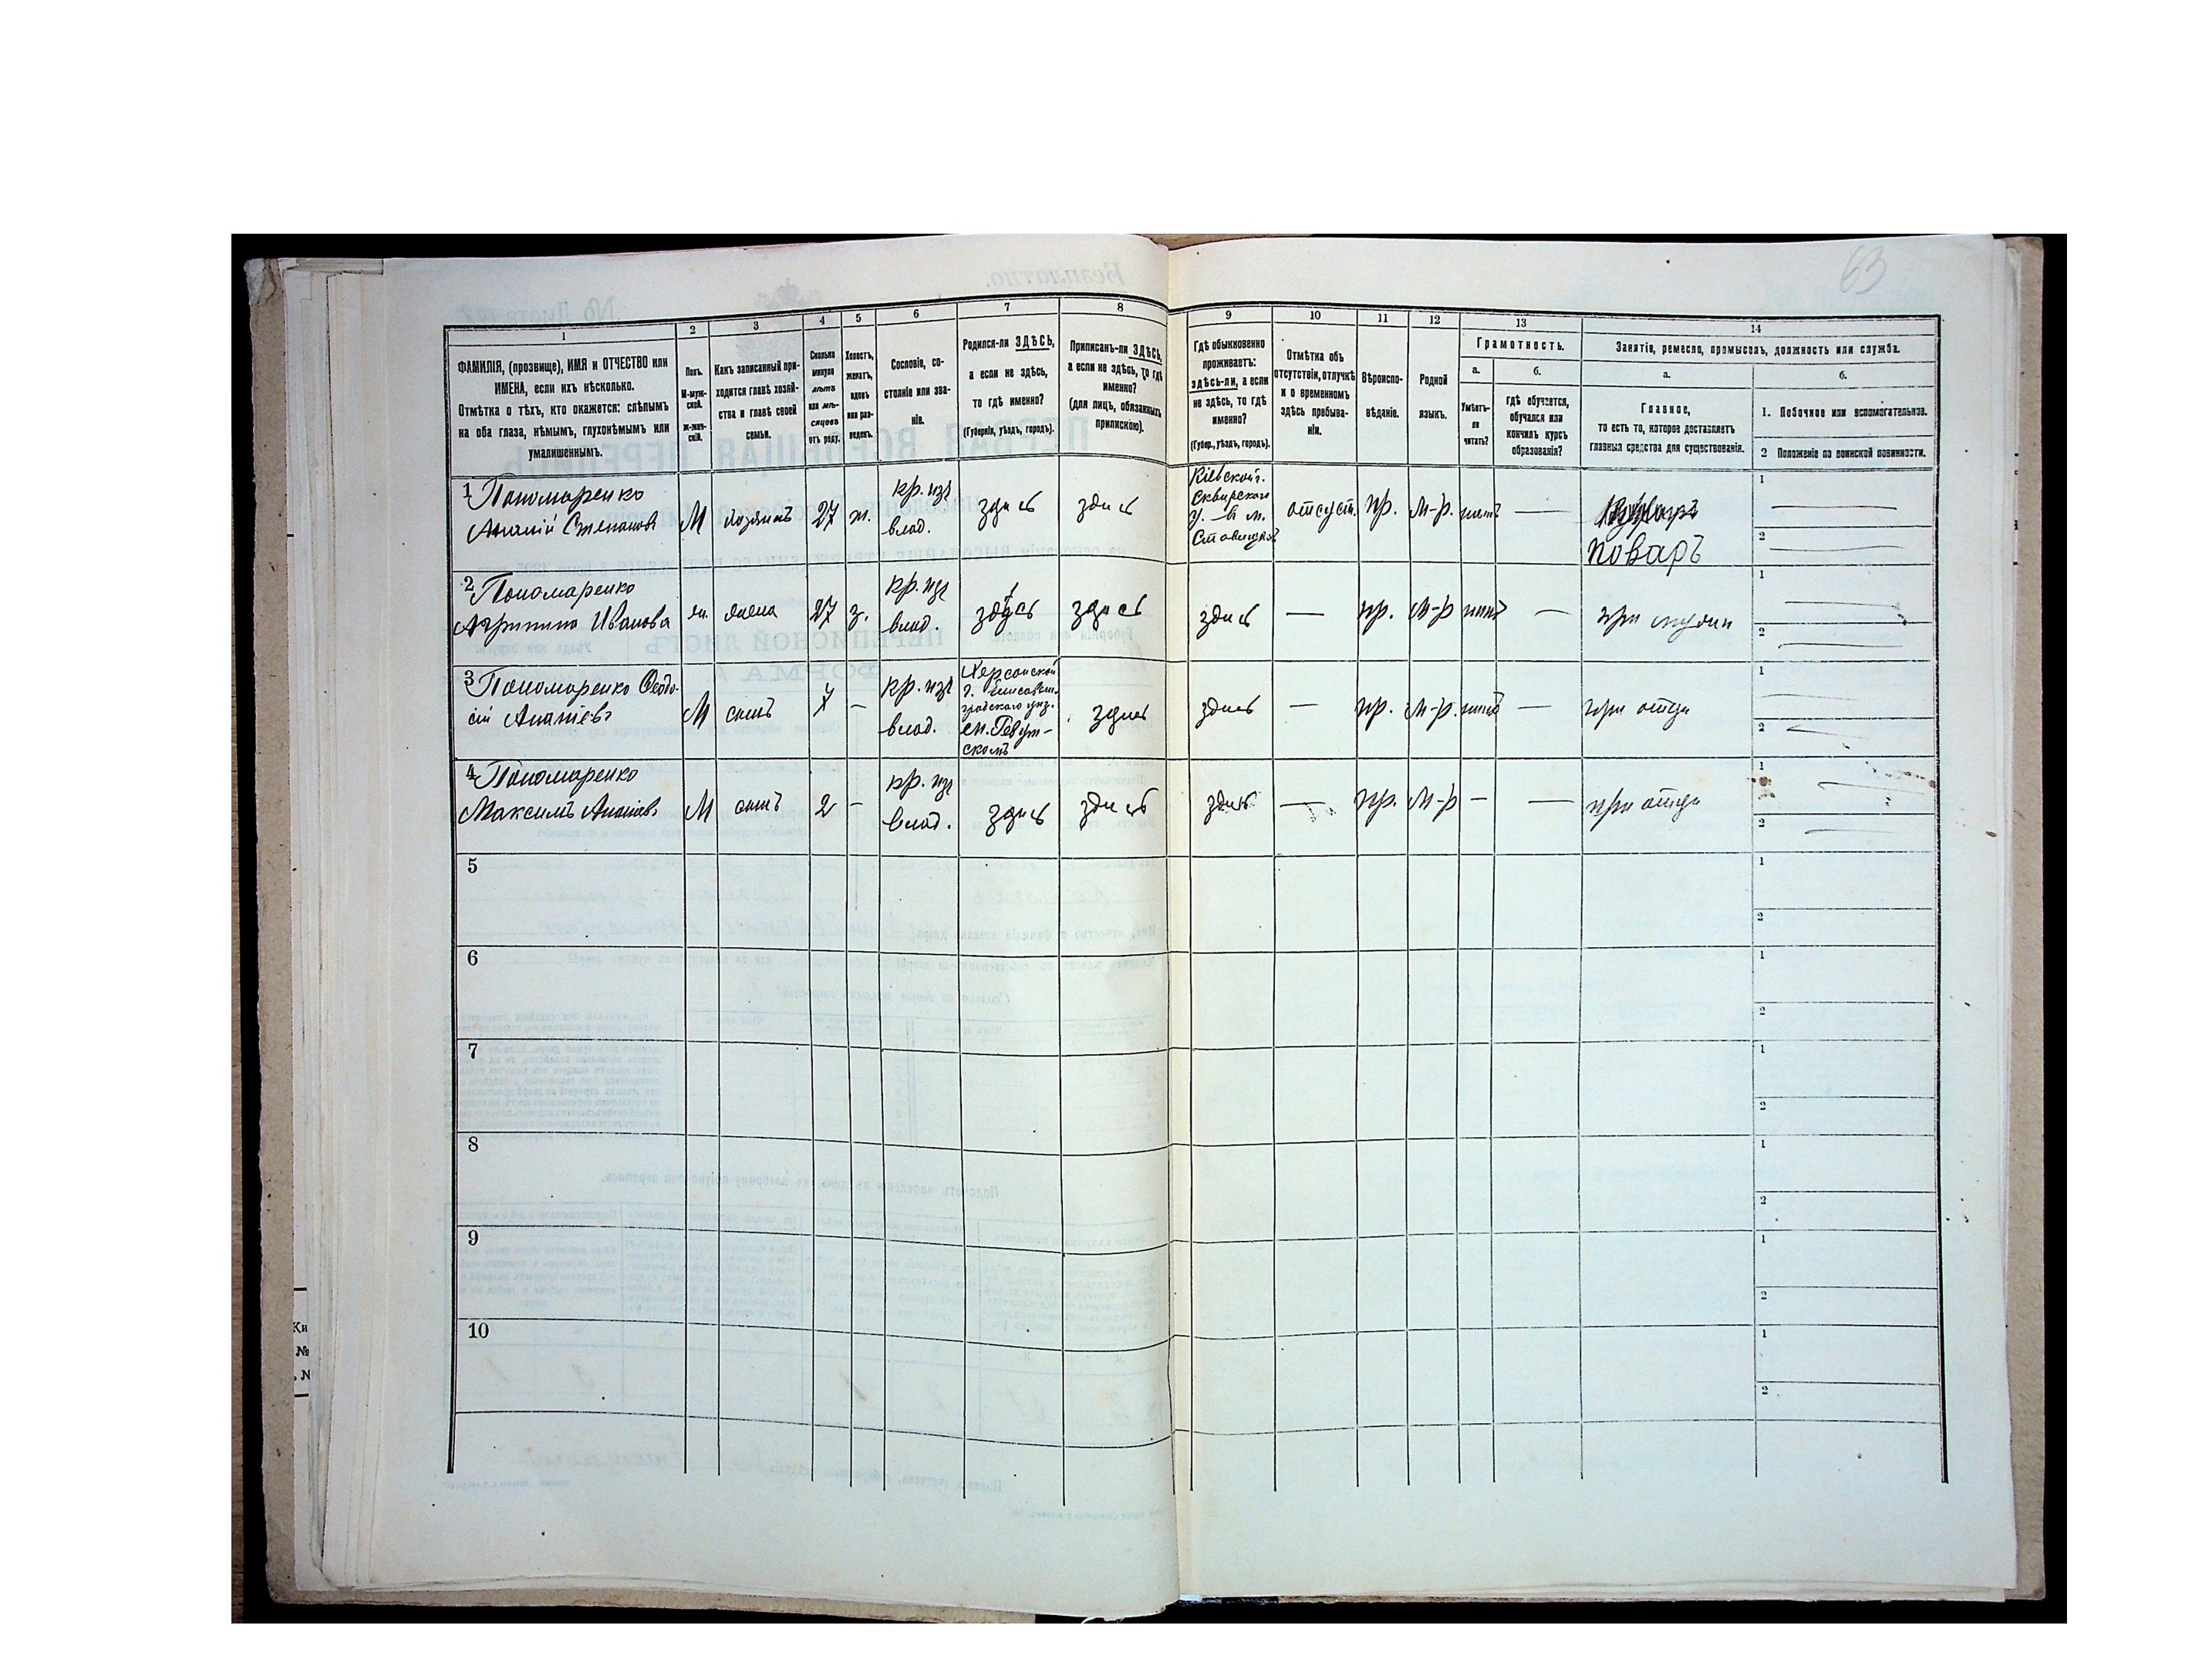 63
1 2 3 4 5 6 7 8 9 10 11 12 13 14
ФАМИЛІЯ, (прозвище), ИМЯ и ОТЧЕСТВО или
ИМЕНА, если ихъ нѣсколько.
Отмѣтка о тѣхъ, кто окажется: слѣпымъ
на оба глаза, нѣмымъ, глухонѣмымъ или
умалишеннымъ.
Полъ.
М-муж-
ской.
Ж-жен-
скій.
Какъ записанный при-
ходится главѣ хозяй-
ства и главѣ своей
семьи.
Сколько
минуло
лѣтъ
или мѣ-
сяцевъ
отъ роду.
Холостъ,
женатъ,
вдовъ
или раз-
веденъ.
Сословіе, со-
стояніе или зва-
ніе.
Родился-ли ЗДѢСЬ,
а если не здѣсь,
то гдѣ именно?
(Губернія, уѣздъ, городъ).
Приписанъ-ли ЗДѢСЬ,
а если не здѣсь, то гдѣ
именно?
(для лицъ, обязанныхъ
припискою).
Гдѣ обыкновенно
проживаетъ:
здѣсь-ли, а если
не здѣсь, то гдѣ
именно?
(Губер., уѣздъ, городъ).
Отмѣтка объ
отсутствіи, отлучкѣ
и о временномъ
здѣсь пребыва-
ніи.
Вѣроиспо-
вѣданіе.
Родной
языкъ.
Грамотность.
а.
Умѣетъ-
ли
читать?
б.
гдѣ обучается,
обучался или
кончилъ курсъ
образованія?
Занятіе, ремесло, промыселъ, должность или служба.
а.
Главное,
то есть то, которое доставляетъ
главныя средства для существованія.
б.
1. Побочное или вспомогательное.
2 Положеніе по воинской повинности.
1 Пономаренко
Ананій Степановъ
М хозяинъ 27 ж.
кр. изъ
влад.
здѣсь здѣсь
Кіевской г.
Сквирскаго
у. — в м.
отсуст. пр. М-р. нѣтъ —
поваръ
1 —
2 —
2 Пономаренко
Агрипина Иванова
жн. жена 27 з.
кр. изъ
влад.
здѣсь здѣсь здѣсь — пр. М-р нѣтъ —
при мужи
1 —
2 —
3 Пономаренко Феодо-
сій Ананіевъ
М сынъ 7 —
кр. изъ
влад.
Херсонской
г. Елисавет-
градскаго уез.
скомъ
здѣсь здѣсь — пр. М-р. нѣтъ —
при отци
1 —
2 —
4 Пономаренко
Максимъ Ананіевъ
М сынъ 2 —
кр. изъ
влад.
здѣсь здѣсь здѣсь — пр. М-р — —
при отци
1 —
2 —
5
1
2
6
1
2
7
1
2
8
1
2
9
1
2
10
1
2
Кн
№